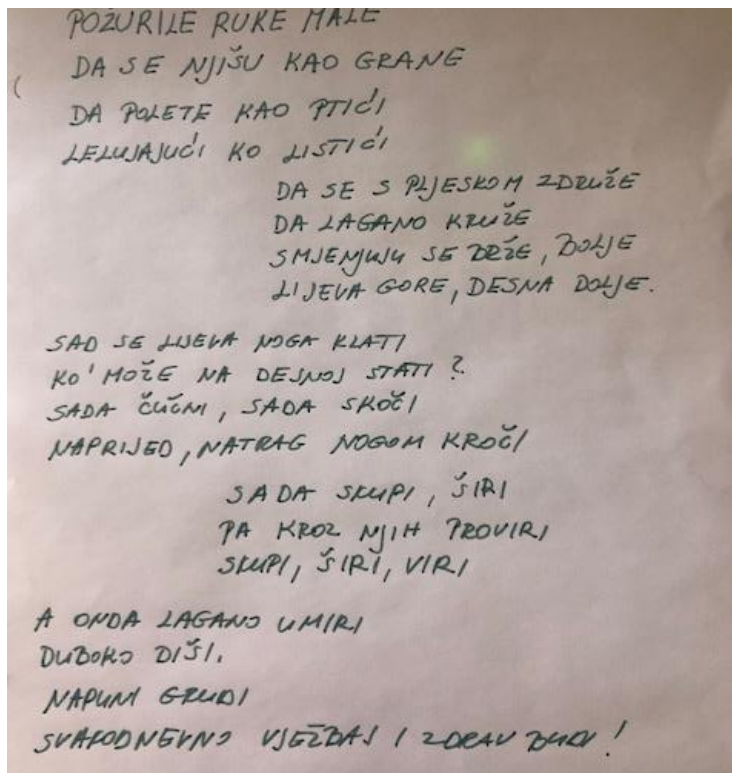 POŽURILE RUKE MALE
DA SE NJIŠU KAO GRANE
DA POLETE KAO PTIĆI
LELUJAJUĆI KO LISTIĆI
DA SE S PLJESKOM ZDRUŽE
DA LAGANO KRUŽE
SMJENJUJU SE BRŽE, BOLJE
LIJEVA GORE, DESNA DOLJE.
SAD SE LIJEVA NOGA KLATI
KO' MOŽE NA DESNOJ STATI?
SADA ČUČNI, SADA SKOČI
NAPRIJED, NATRAG NOGOM KROČI
SADA SKUPI, ŠIRI
PA KROZ NJIH PROVIRI
SKUPI, ŠIRI, VIRI
A ONDA LAGANO UMIRI
DUBOKO DIŠI.
NAPUNI GRUDI
SVAKODNEVNO VJEŽBAJ I ZDRAV BUDI!